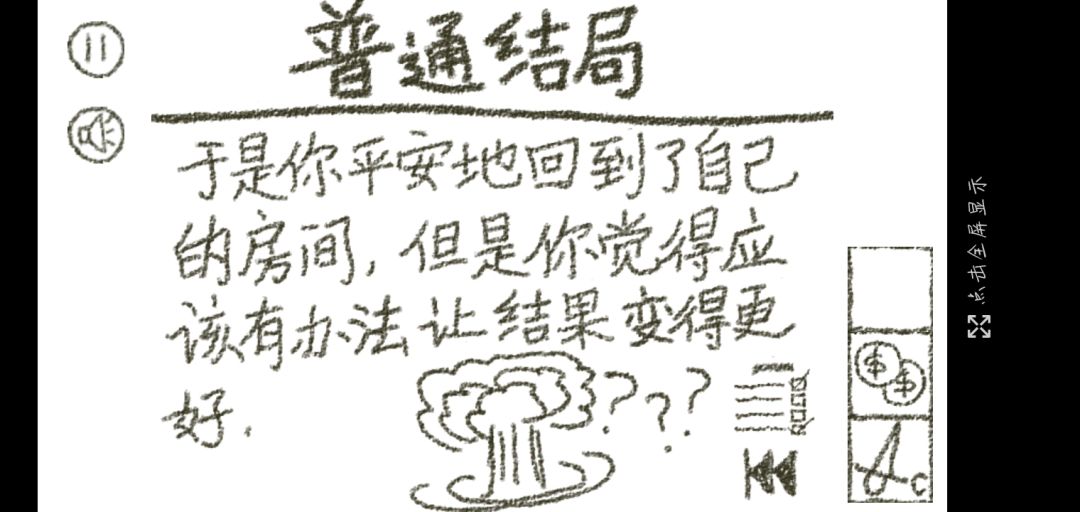 普通结局
于是你平安地回到了自己
的房间，但是你觉得应
该有办法让结果变得更
好.
???
$ $
点击全屏显示